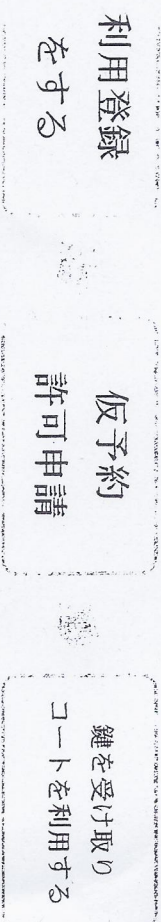 利用登録
をする
仮予約
許可申請
鍵を受け取り
コートを利用する